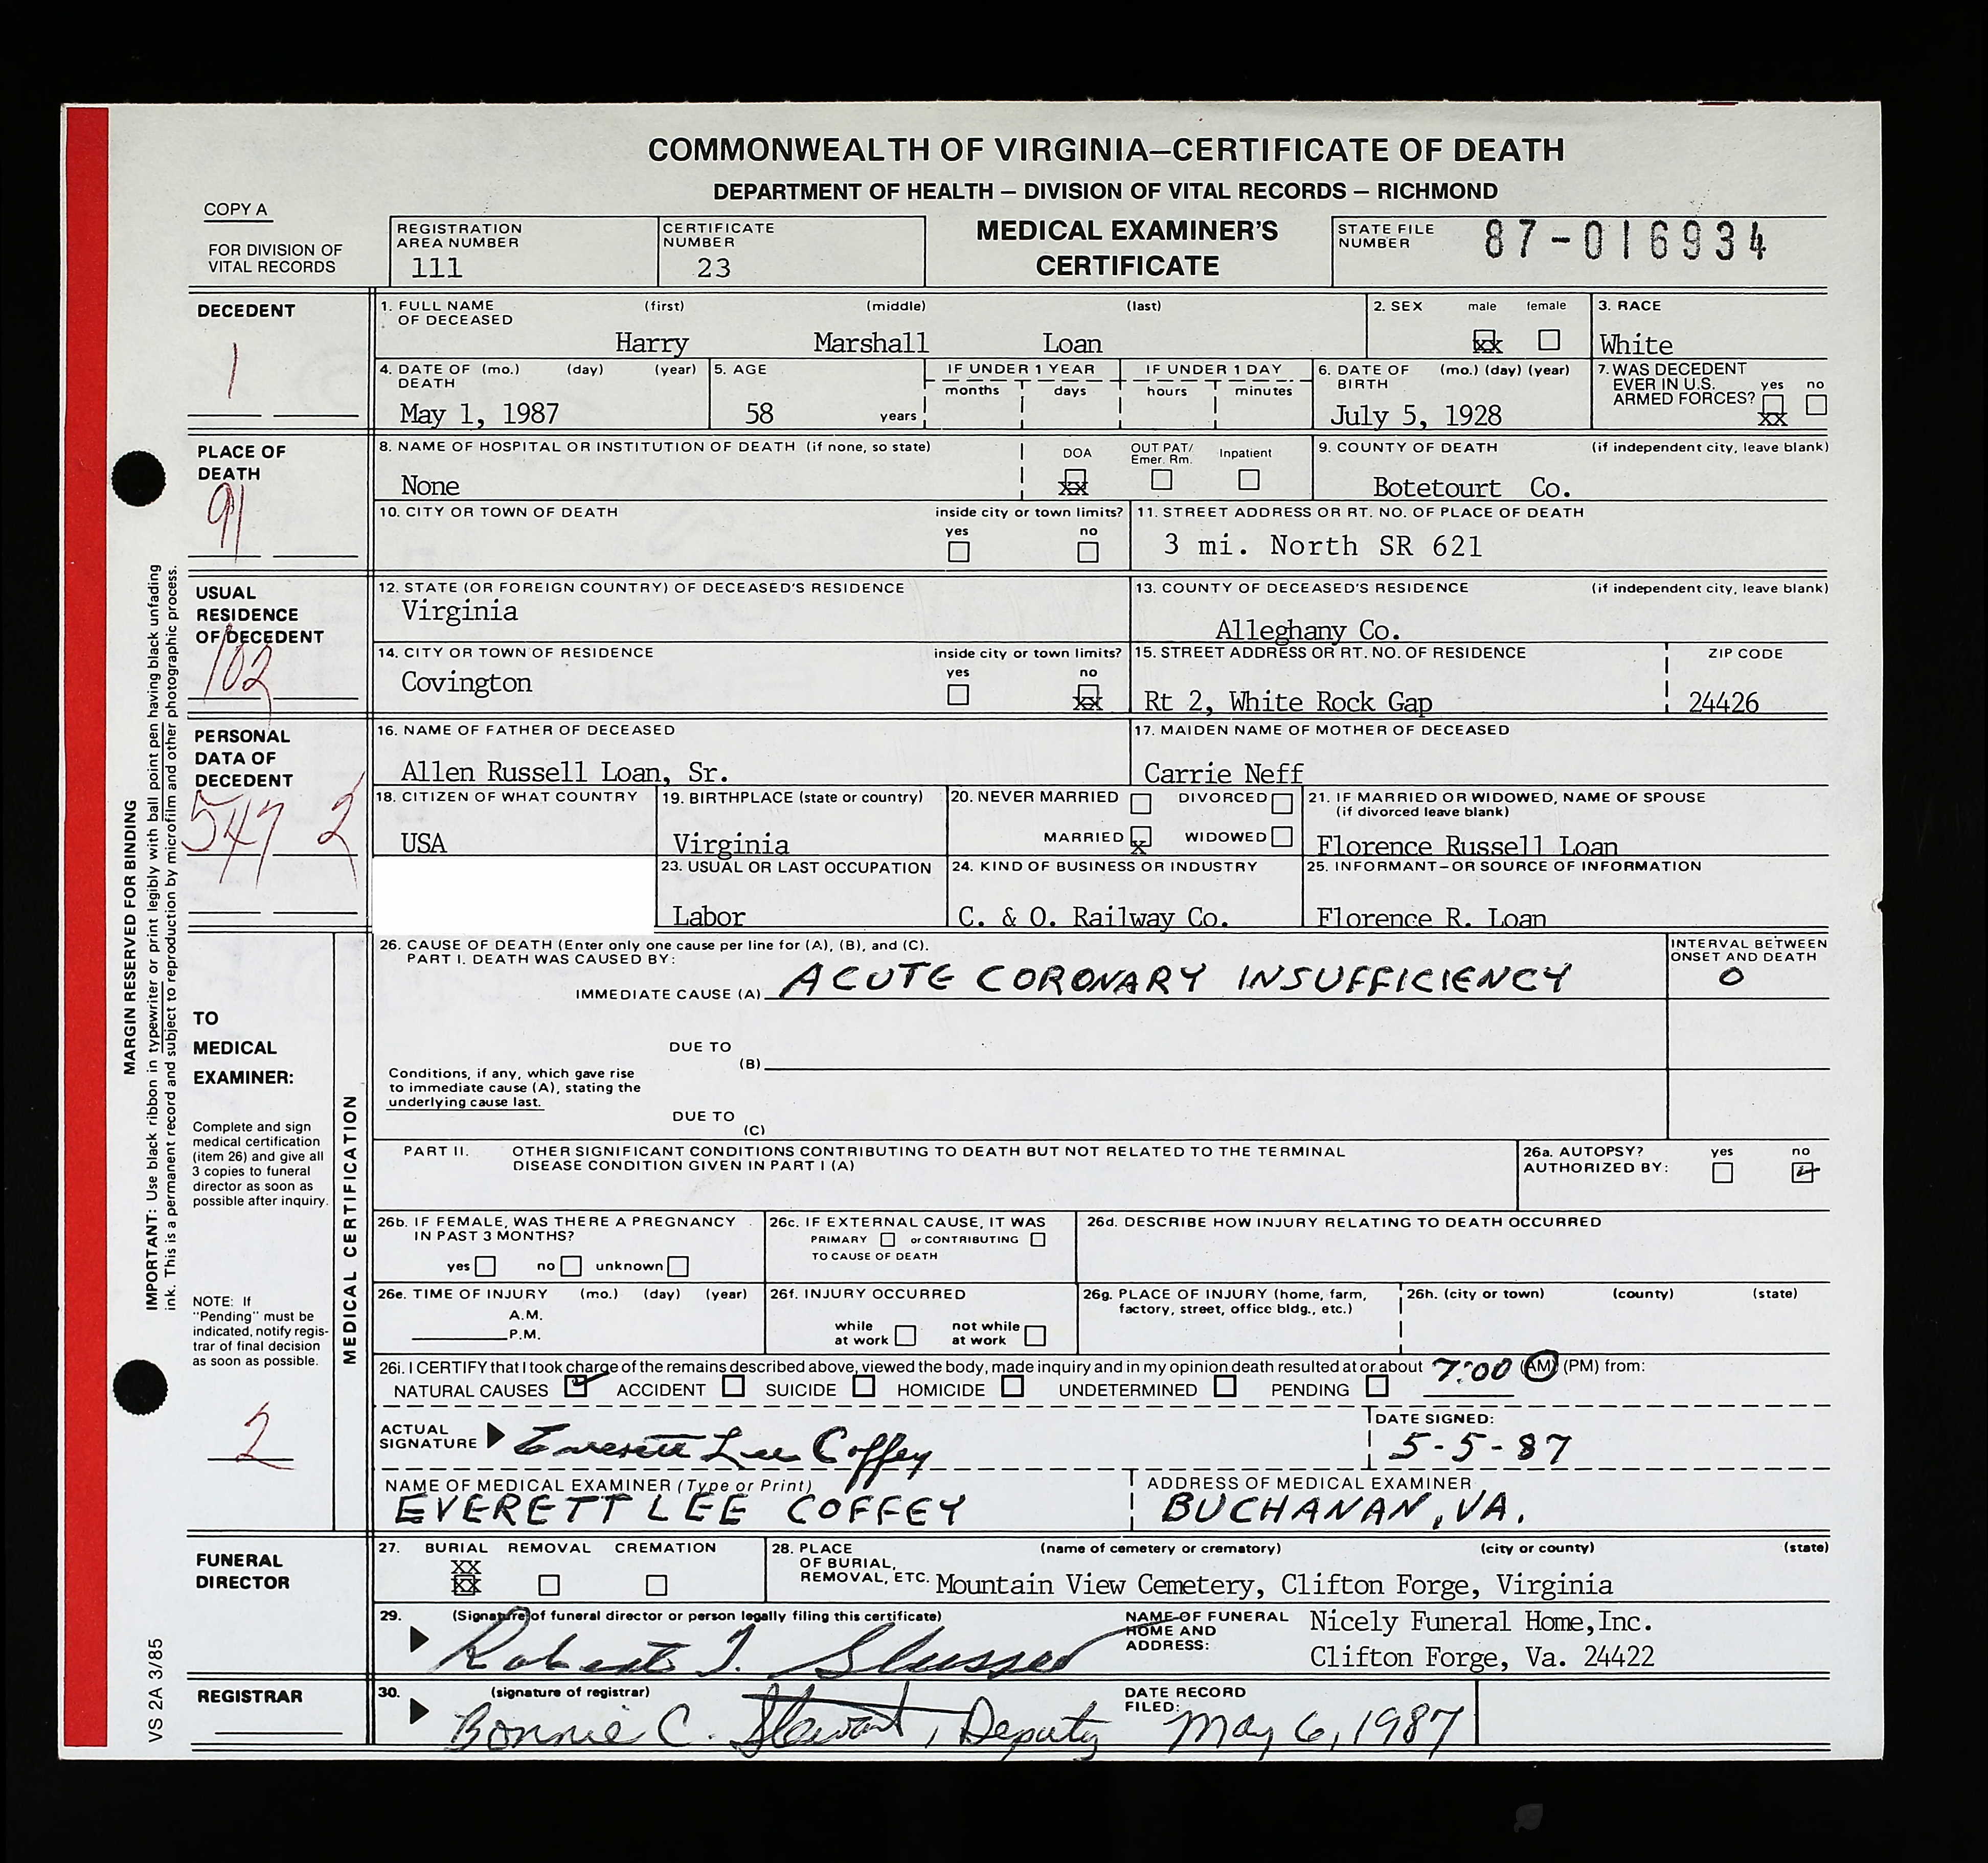 COMMONWEALTH OF VIRGINIA—CERTIFICATE OF DEATH
DEPARTMENT OF HEALTH — DIVISION OF VITAL RECORDS — RICHMOND
COPY A
FOR DIVISION OF
VITAL RECORDS
REGISTRATION
AREA NUMBER
111
CERTIFICATE
NUMBER
23
MEDICAL EXAMINER'S
CERTIFICATE
STATE FILE
NUMBER
87-016934
DECEDENT
1
1. FULL NAME (first) (middle) (last)
OF DECEASED
Harry Marshall Loan
2. SEX male female
xx
3. RACE
White
4. DATE OF (mo.) (day) (year)
DEATH
May 1, 1987
5. AGE
58 years
IF UNDER 1 YEAR
months days
IF UNDER 1 DAY
hours minutes
6. DATE OF (mo.) (day) (year)
BIRTH
July 5, 1928
7. WAS DECEDENT
EVER IN U.S. yes no
ARMED FORCES?
xx
PLACE OF
DEATH
91
8. NAME OF HOSPITAL OR INSTITUTION OF DEATH (if none, so state)
None
DOA OUT PAT/ Inpatient
Emer. Rm.
xx
9. COUNTY OF DEATH (if independent city, leave blank)
Botetourt Co.
10. CITY OR TOWN OF DEATH inside city or town limits?
yes no
11. STREET ADDRESS OR RT. NO. OF PLACE OF DEATH
3 mi. North SR 621
USUAL
RESIDENCE
OF DECEDENT
102
12. STATE (OR FOREIGN COUNTRY) OF DECEASED'S RESIDENCE
Virginia
13. COUNTY OF DECEASED'S RESIDENCE (if independent city, leave blank)
Alleghany Co.
14. CITY OR TOWN OF RESIDENCE inside city or town limits?
Covington yes no
xx
15. STREET ADDRESS OR RT. NO. OF RESIDENCE ZIP CODE
Rt 2, White Rock Gap 24426
PERSONAL
DATA OF
DECEDENT
547 2
16. NAME OF FATHER OF DECEASED
Allen Russell Loan, Sr.
17. MAIDEN NAME OF MOTHER OF DECEASED
Carrie Neff
18. CITIZEN OF WHAT COUNTRY
USA
19. BIRTHPLACE (state or country)
Virginia
20. NEVER MARRIED DIVORCED
MARRIED x WIDOWED
21. IF MARRIED OR WIDOWED, NAME OF SPOUSE
(if divorced leave blank)
Florence Russell Loan
23. USUAL OR LAST OCCUPATION
Labor
24. KIND OF BUSINESS OR INDUSTRY
C. & O. Railway Co.
25. INFORMANT—OR SOURCE OF INFORMATION
Florence R. Loan
MARGIN RESERVED FOR BINDING
IMPORTANT: Use black ribbon in typewriter or print legibly with ball point pen having black unfading
ink. This is a permanent record and subject to reproduction by microfilm and other photographic process.
VS 2A 3/85
TO
MEDICAL
EXAMINER:
Complete and sign
medical certification
(item 26) and give all
3 copies to funeral
director as soon as
possible after inquiry.
NOTE: If
"Pending" must be
indicated, notify regis-
trar of final decision
as soon as possible.
2
MEDICAL CERTIFICATION
26. CAUSE OF DEATH (Enter only one cause per line for (A), (B), and (C).
PART I. DEATH WAS CAUSED BY:
IMMEDIATE CAUSE (A) ACUTE CORONARY INSUFFICIENCY
INTERVAL BETWEEN
ONSET AND DEATH
0
DUE TO
(B)
Conditions, if any, which gave rise
to immediate cause (A), stating the
underlying cause last.
DUE TO
(C)
PART II. OTHER SIGNIFICANT CONDITIONS CONTRIBUTING TO DEATH BUT NOT RELATED TO THE TERMINAL
DISEASE CONDITION GIVEN IN PART I (A)
26a. AUTOPSY? yes no
AUTHORIZED BY:
26b. IF FEMALE, WAS THERE A PREGNANCY
IN PAST 3 MONTHS?
yes no unknown
26c. IF EXTERNAL CAUSE, IT WAS
PRIMARY or CONTRIBUTING
TO CAUSE OF DEATH
26d. DESCRIBE HOW INJURY RELATING TO DEATH OCCURRED
26e. TIME OF INJURY (mo.) (day) (year)
A.M.
P.M.
26f. INJURY OCCURRED
while not while
at work at work
26g. PLACE OF INJURY (home, farm,
factory, street, office bldg., etc.)
26h. (city or town) (county) (state)
26i. I CERTIFY that I took charge of the remains described above, viewed the body, made inquiry and in my opinion death resulted at or about 7:00 (AM) (PM) from:
NATURAL CAUSES ACCIDENT SUICIDE HOMICIDE UNDETERMINED PENDING
ACTUAL
SIGNATURE Everett Lee Coffey
DATE SIGNED:
5-5-87
NAME OF MEDICAL EXAMINER (Type or Print)
EVERETT LEE COFFEY
ADDRESS OF MEDICAL EXAMINER
BUCHANAN, VA.
FUNERAL
DIRECTOR
27. BURIAL REMOVAL CREMATION
XX
XX
28. PLACE (name of cemetery or crematory) (city or county) (state)
OF BURIAL,
REMOVAL, ETC. Mountain View Cemetery, Clifton Forge, Virginia
29. (Signature of funeral director or person legally filing this certificate)
Robert J. Slusser
NAME OF FUNERAL
HOME AND
ADDRESS:
Nicely Funeral Home,Inc.
Clifton Forge, Va. 24422
REGISTRAR
30. (signature of registrar)
Bonnie C. Stewart, Deputy
DATE RECORD
FILED: May 6, 1987